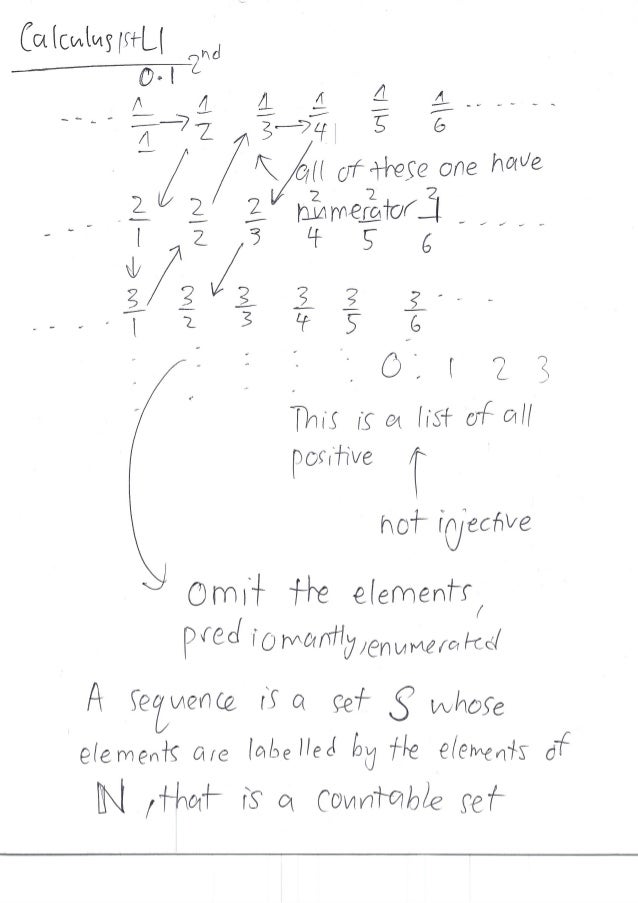 Calculus 1st L1
0.1 2nd
1/1 → 1/2 1/3 → 1/4 1/5 1/6 ......
all of these one have
numerator 1
2/1 2/2 2/3 2/4 2/5 2/6
3/1 3/2 3/3 3/4 3/5 3/6 ...
0 : 1 2 3
This is a list of all
positive
not injective
omit the elements,
prediomantly, enumerated
A sequence is a set S whose
elements are labelled by the elements of
ℕ, that is a countable set